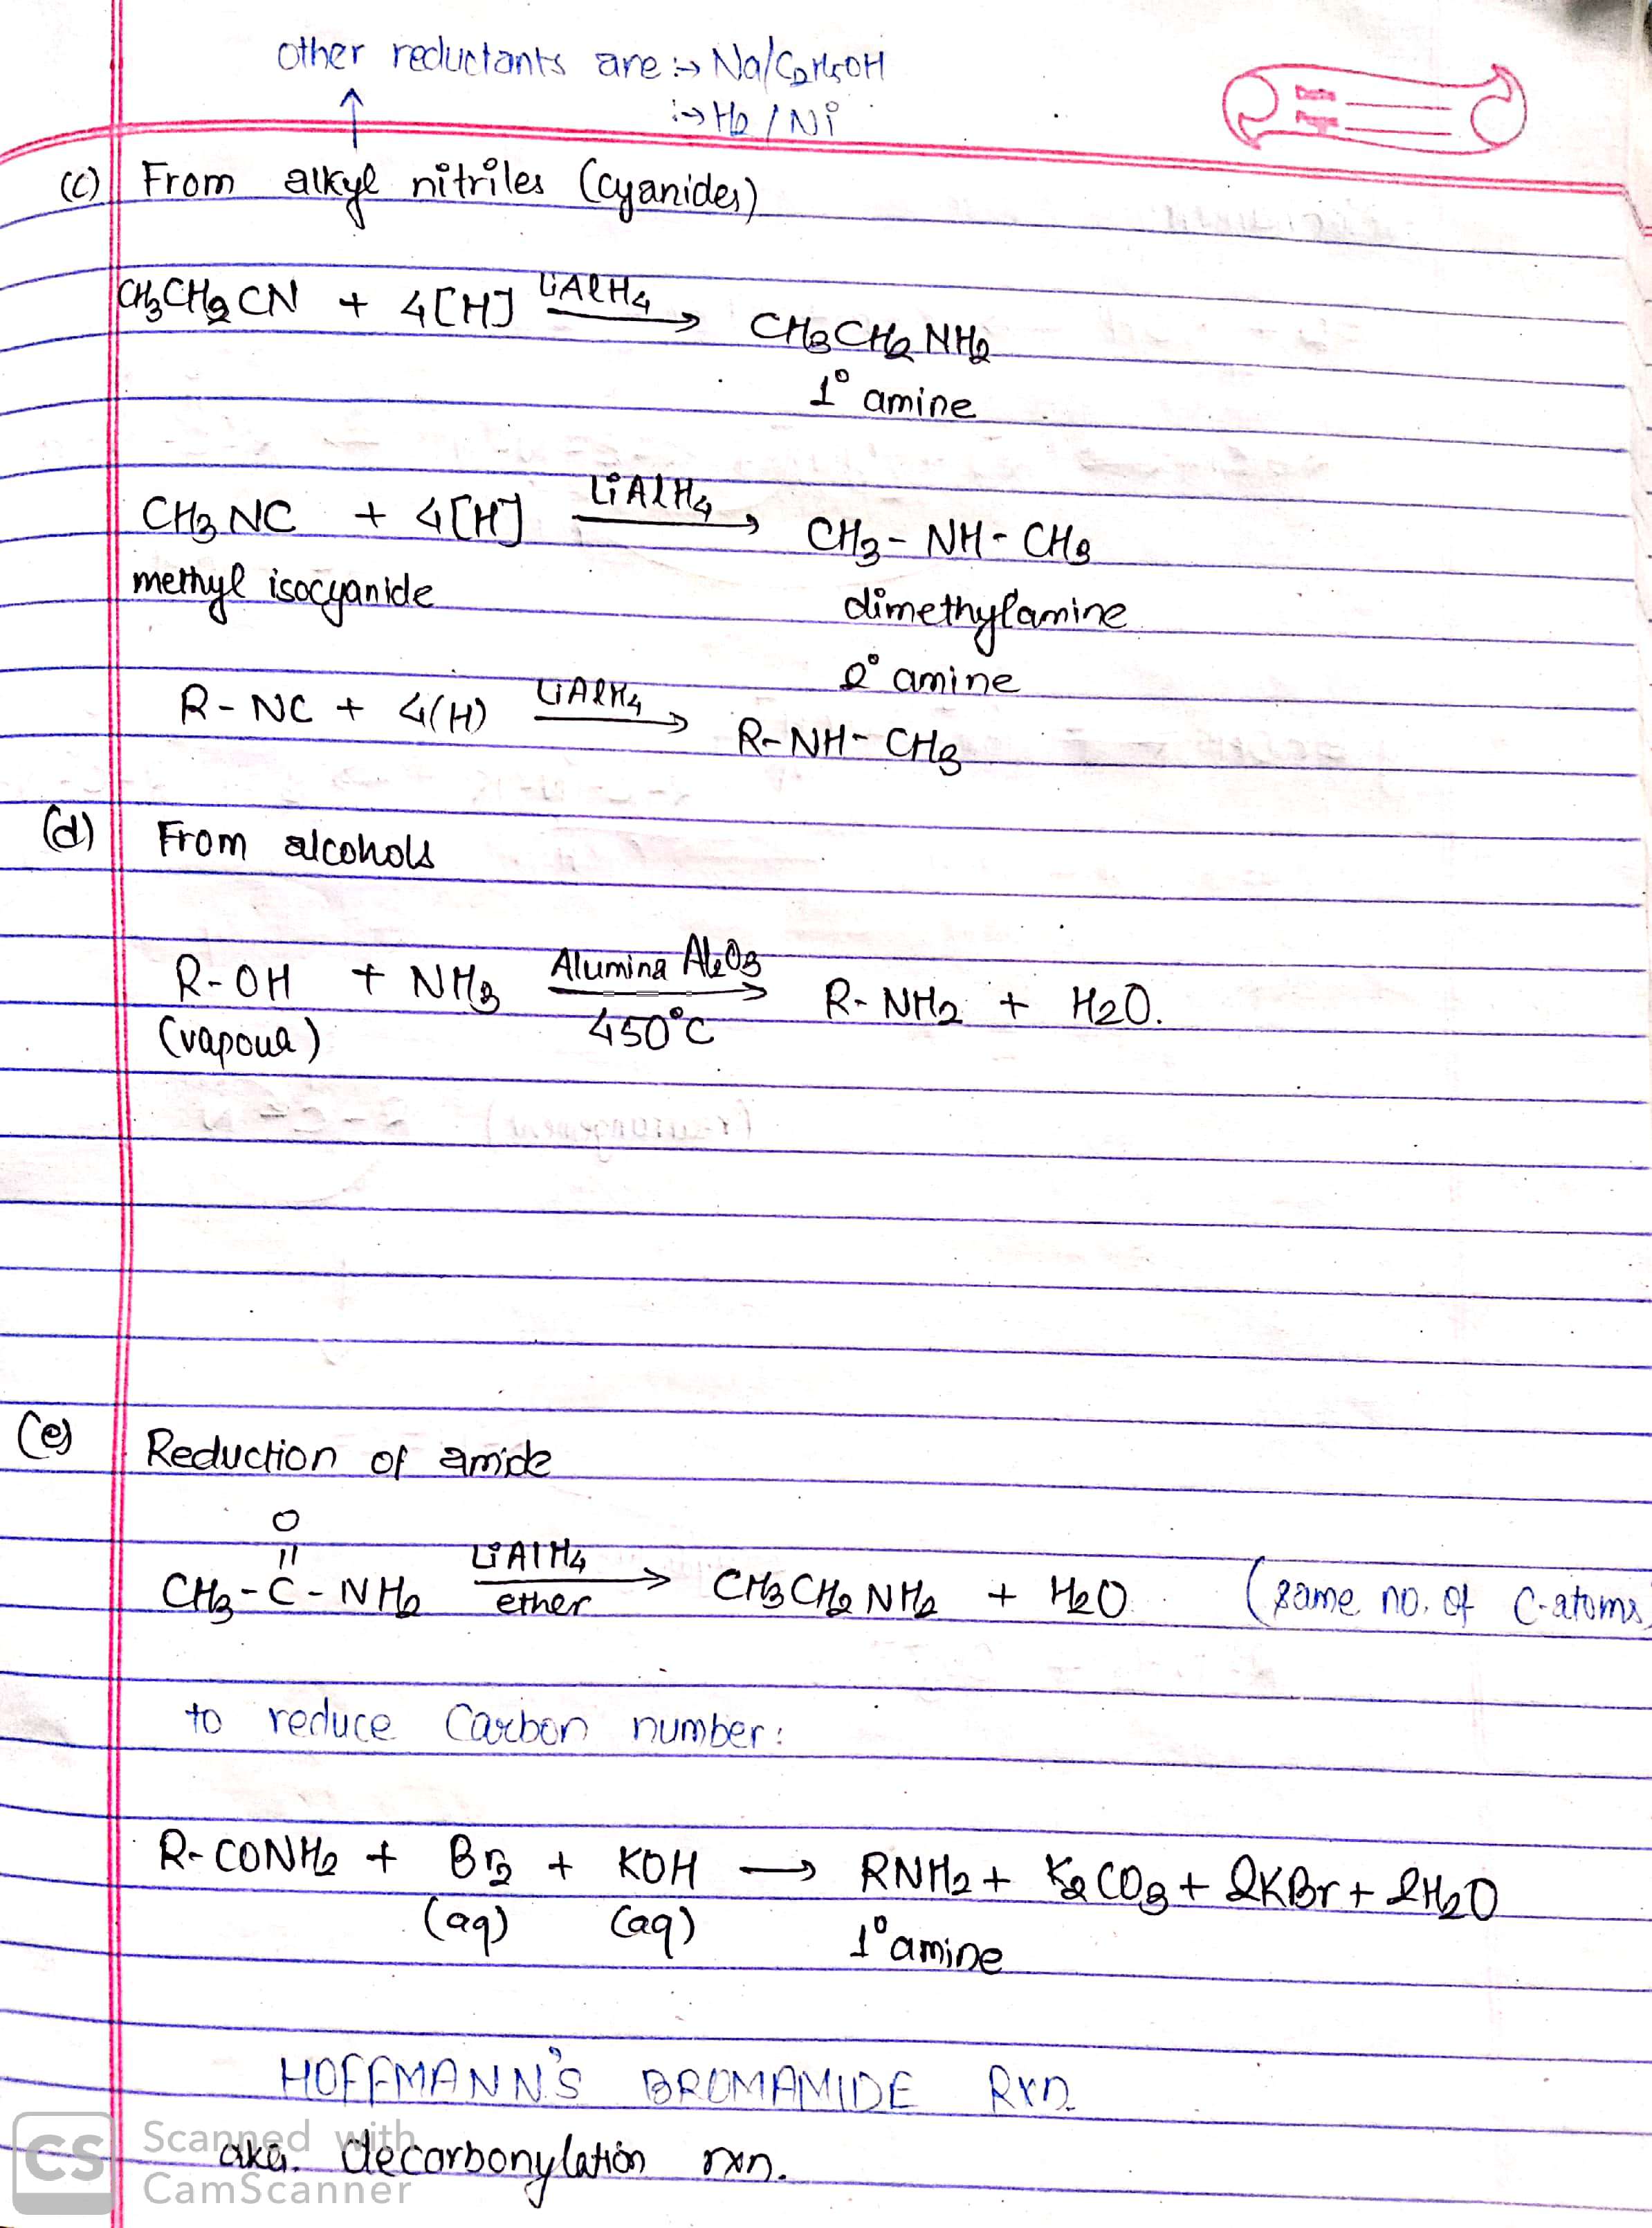 other reductants are :→ Na/C2H5OH
:→ H2 / Ni
Date
Page
(c) From alkyl nitriles (cyanides)
CH3CH2CN + 4[H] LiAlH4 → CH3CH2NH2
1° amine
CH3NC + 4[H] LiAlH4 → CH3-NH-CH3
methyl isocyanide dimethylamine
2° amine
R-NC + 4(H) LiAlH4 → R-NH-CH3
(d) From alcohols
R-OH + NH3 Alumina Al2O3 → R-NH2 + H2O.
(vapour) 450°C
(e) Reduction of amide
O
||
CH3-C-NH2 LiAlH4 → CH3CH2NH2 + H2O (same no. of C-atoms)
ether
to reduce Carbon number:
R-CONH2 + Br2 + KOH → RNH2 + K2CO3 + 2KBr + 2H2O
(aq) (aq) 1° amine
HOFFMANN'S BROMAMIDE Rxn.
aka. decarbonylation rxn.
CS Scanned with
CamScanner